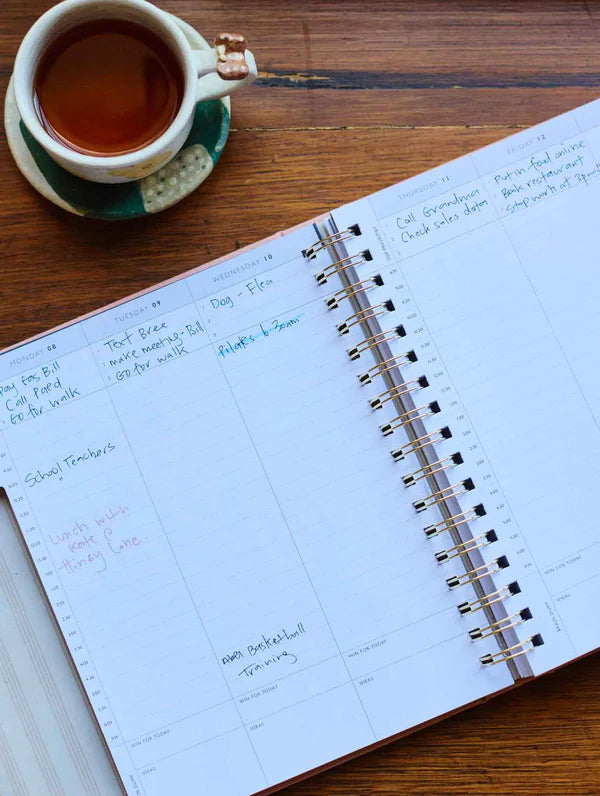 MONDAY 08
Pay gas Bill
Call Paed
Go for walk
School Teachers
Lunch with
Kate @
Honey Lane.
WIN FOR TODAY
IDEAS
TUESDAY 09
Text Bree
make meeting-Bill
Go for walk
Abel Basketball
Training
WIN FOR TODAY
IDEAS
WEDNESDAY 10
Dog - Flea
Pilates 6:30am
WIN FOR TODAY
IDEAS
TOP PRIORITIES
THURSDAY 11
Call Grandma
Check sales data
WIN FOR TODAY
IDEAS
BRAIN DUMP
FRIDAY 12
Put in food online
Book restaurant
Stop work at 3pm